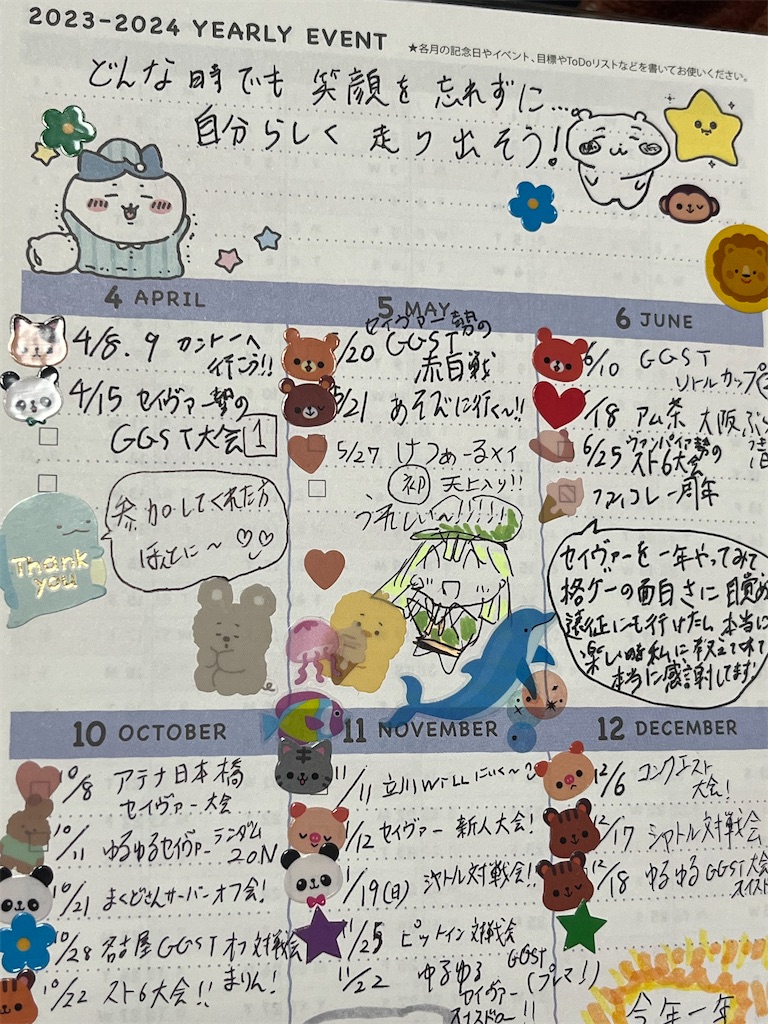 2023-2024 YEARLY EVENT
★各月の記念日やイベント、目標やToDoリストなどを書いてお使いください。
どんな時でも 笑顔を 忘れずに...
自分らしく 走り出そう!
4 APRIL
4/8.9 カントーへ
行こう!!
4/15 セイヴァー勢の
GGST大会 1
参加してくれた方
ほんとに〜
Thank
you
5 MAY
セイヴァー勢の
/20 GGST
赤白戦
/21 あそびに行く〜!!
5/27 けつぁーるメイ
初 天上入り!!
うれしい〜!!!!!
6 JUNE
6/10 GGST
リトルカップ
/18 アム茶 大阪
6/25 ヴァンパイア勢の
スト6大会
ファイコレ一周年
セイヴァーを一年やってみて
格ゲーの面白さに目覚め
遠征にも行けたし 本当に
楽しい時私に教えてくれて
本当に感謝してます!
10 OCTOBER
10/8 アテナ日本橋
セイヴァー大会
10/11 ゆるゆるセイヴァー ランダム
2ON
10/21 まくどさんサーバーオフ会!
10/28 名古屋GGSTオフ対戦会
まりん!
10/22 スト6大会!!
11 NOVEMBER
11/11 立川WiLLにいく〜
/12 セイヴァー 新人大会!
1/19(日) シャトル対戦会!!
11/25 ピットイン対戦会
11/22 ゆるゆる GGST
セイヴァー (プレマ!)
スイスドロー!!
12 DECEMBER
12/6 コンクエスト
大会!
12/17 シャトル対戦会
12/18 ゆるゆるGGST大会
スイスド
今年一年